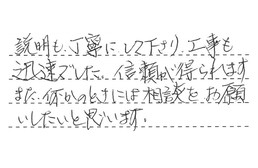 説明も丁寧にして下さり工事も
迅速でした。信頼が得られます
また何かのときには相談をお願
いしたいと思います。